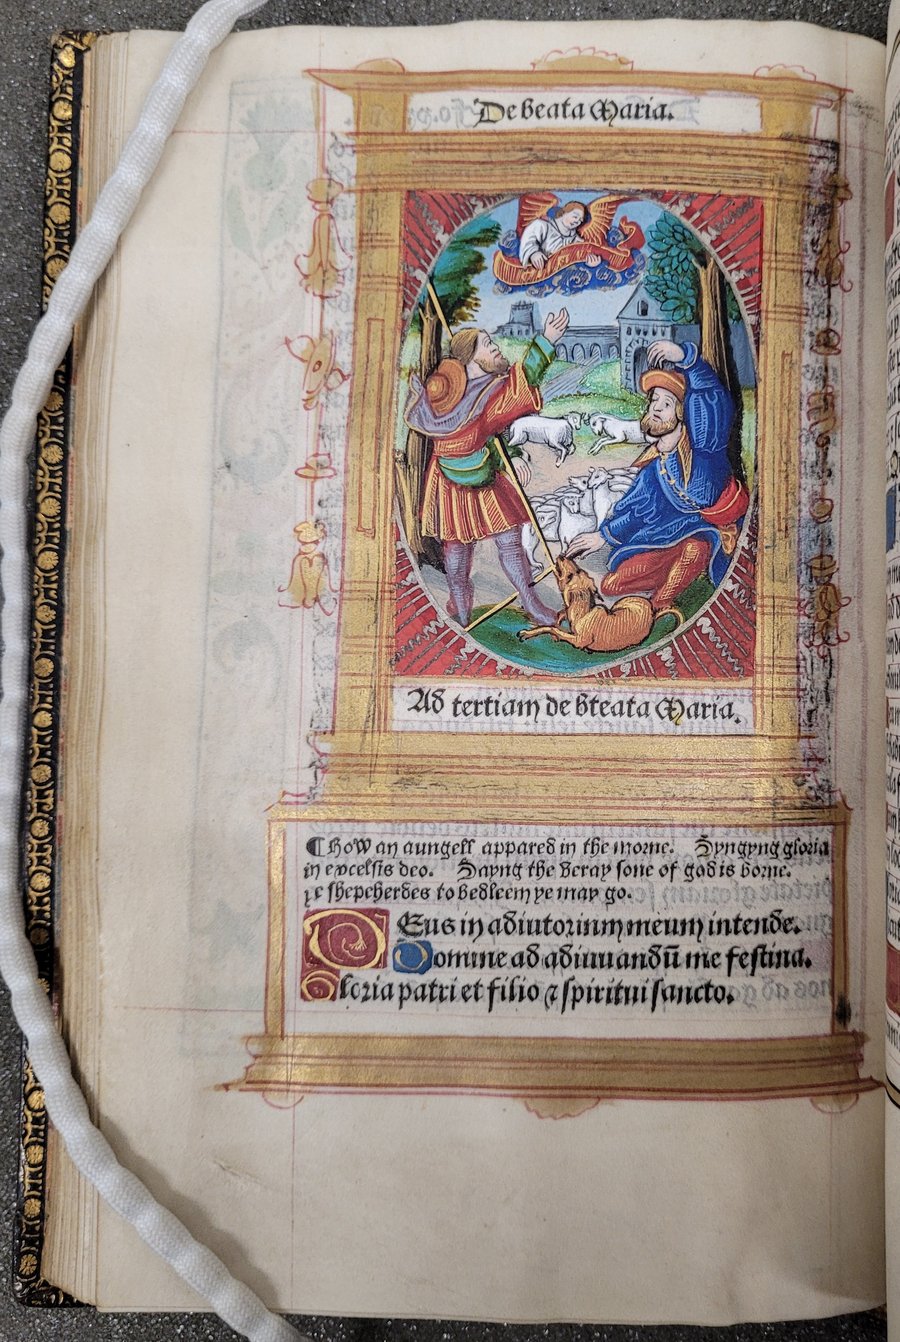 De beata Maria.
Ad tertiam de bteata Maria.
¶ how an aungell appared in the morne. Syngyng gloria
in excelsis deo. Sayng the veray sone of god is borne.
ye shepeherdes to bedleem ye may go.
Deus in adiutorium meum intende.
Domine ad adiuuandū me festina.
Gloria patri et filio ⁊ spiritui sancto.